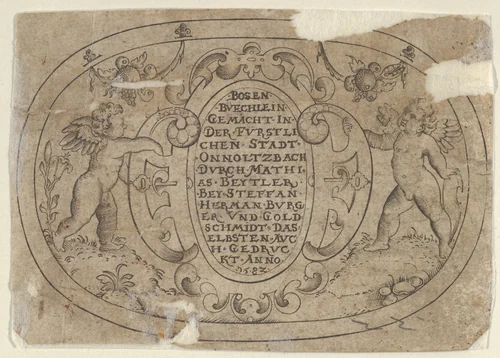 BOSEN
BVECHLEIN
GEMACHT · IN ·
DER · FVRSTLI
CHEN · STADT ·
ONNOLTZBACH
DVRCH · MATHI
AS · BEYTLER
BEY · STEFFAN ·
HERMAN · BVRG
ER · VND · GOLD
SCHMIDT · DAS
ELBSTEN · AVC
H · GEDRVC
KT · ANNO ·
1582